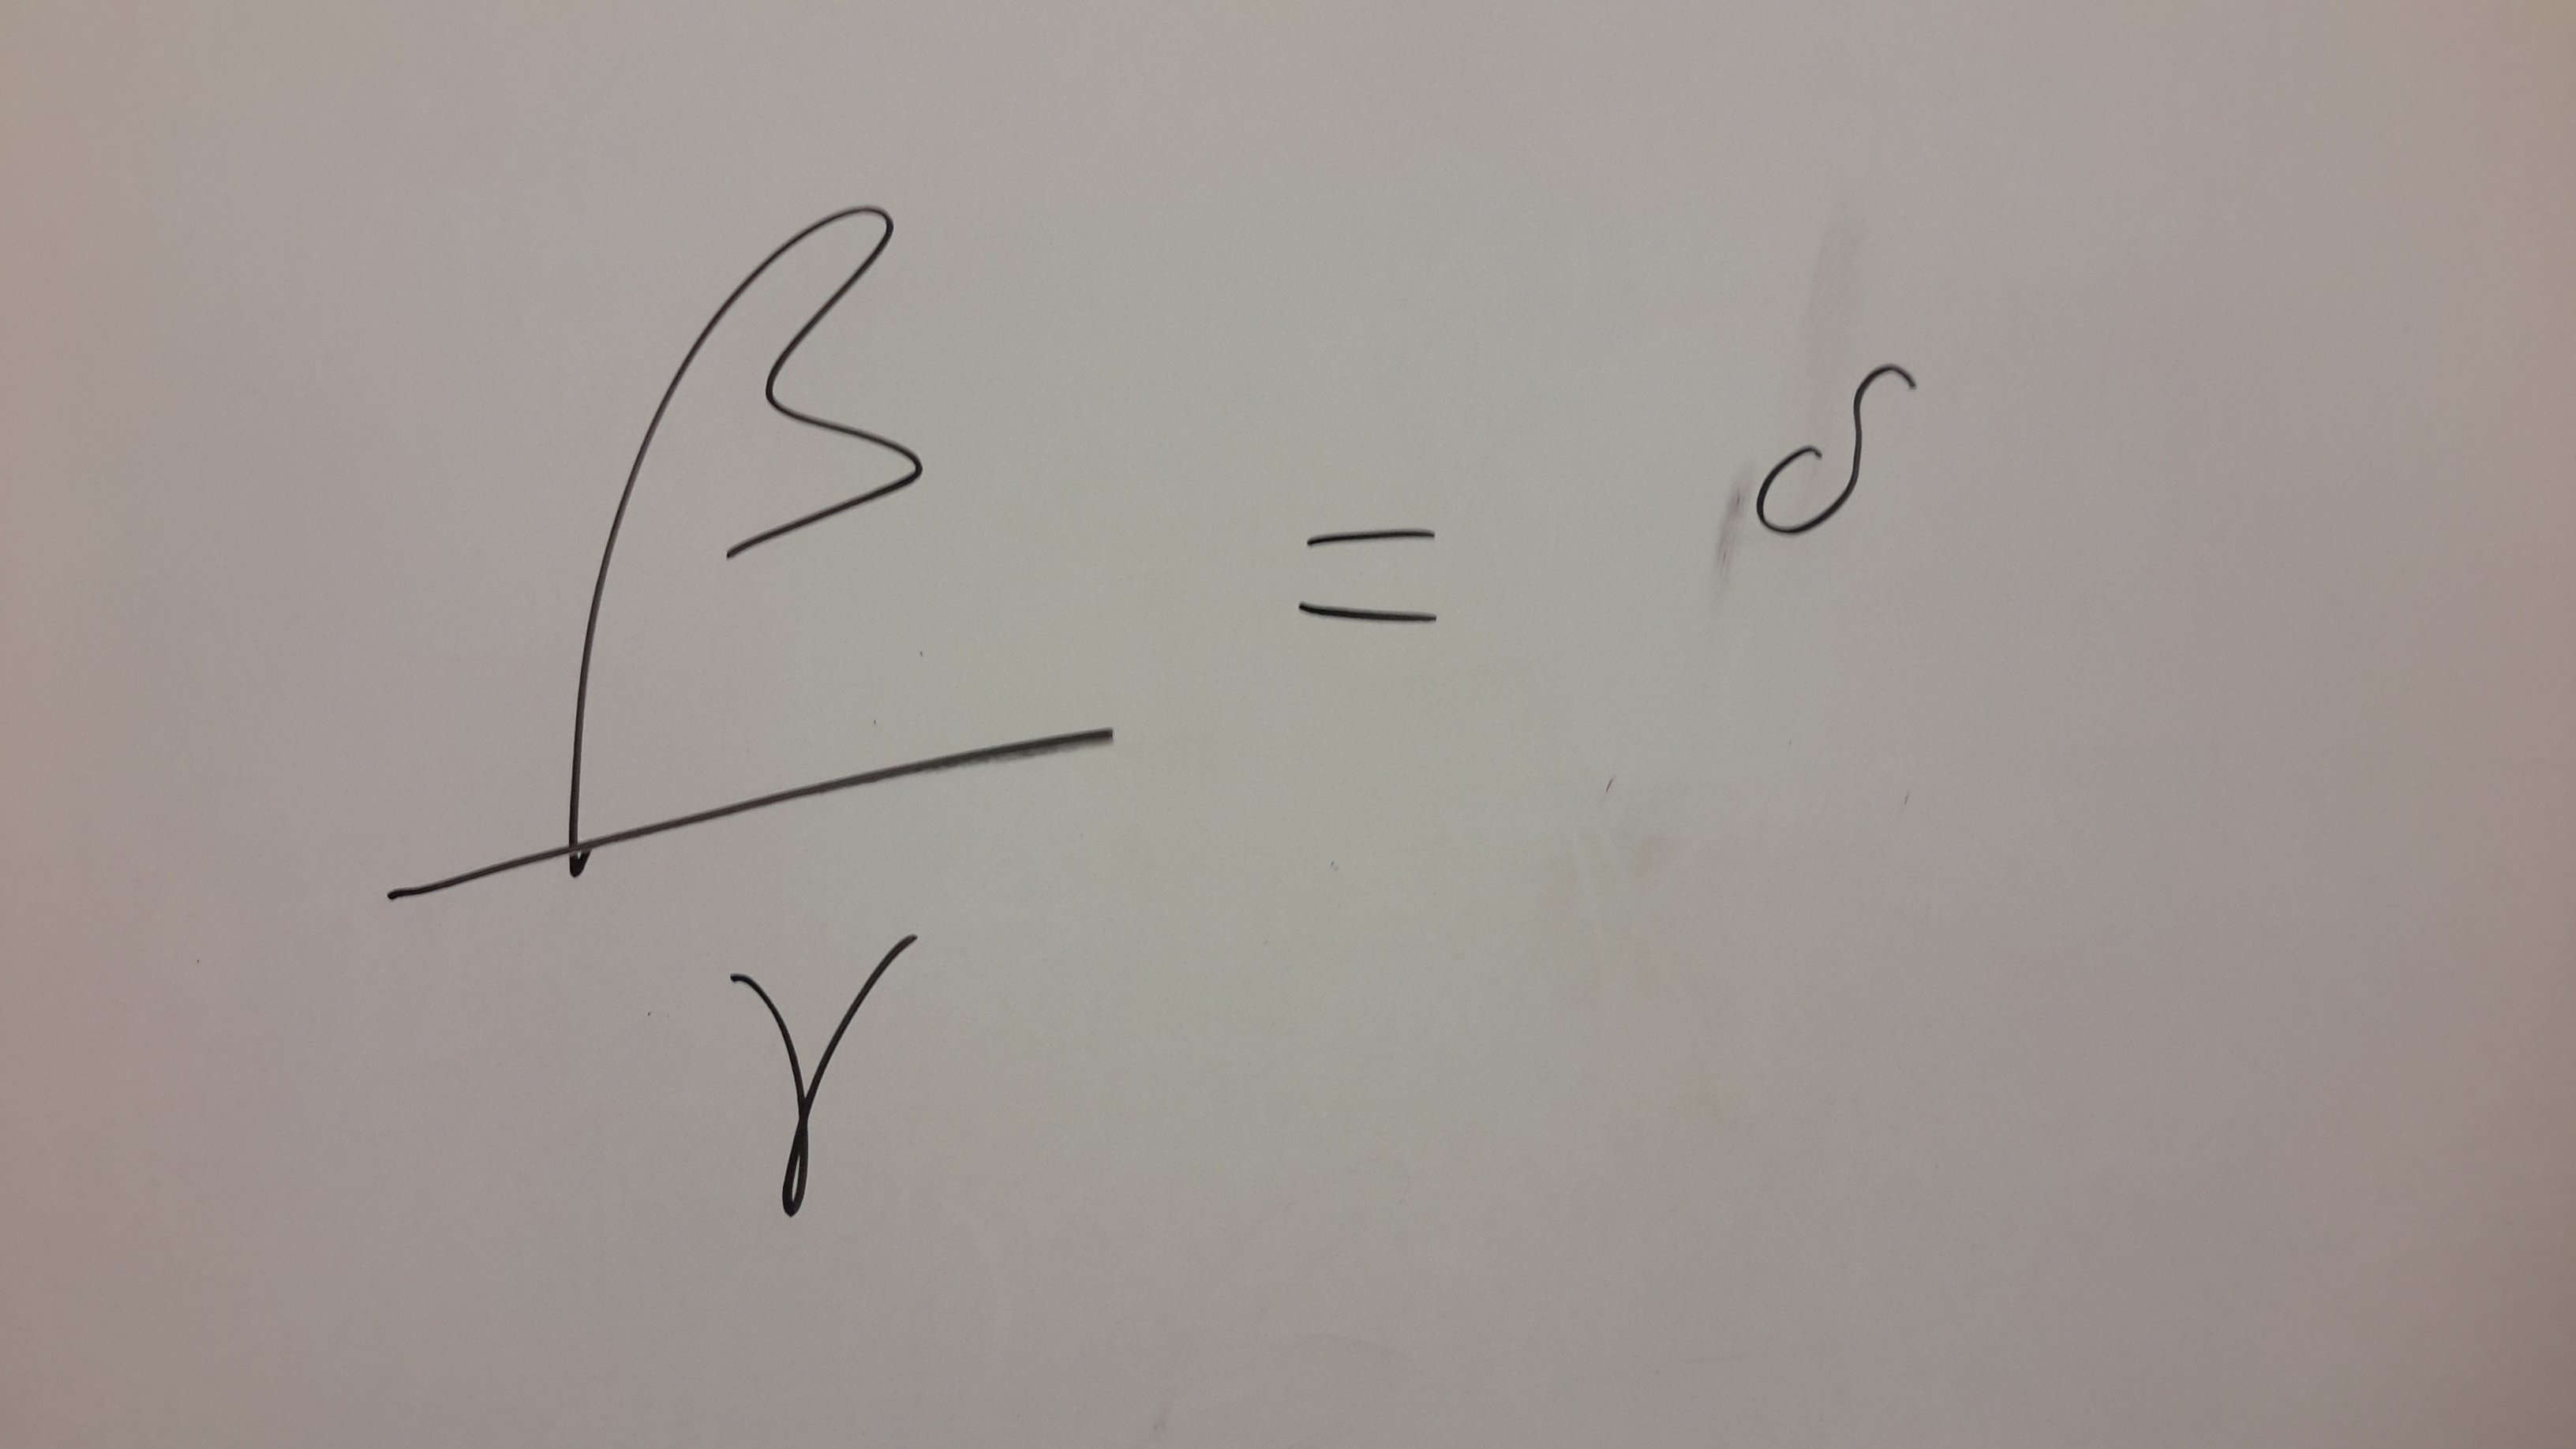 β
γ
= δ